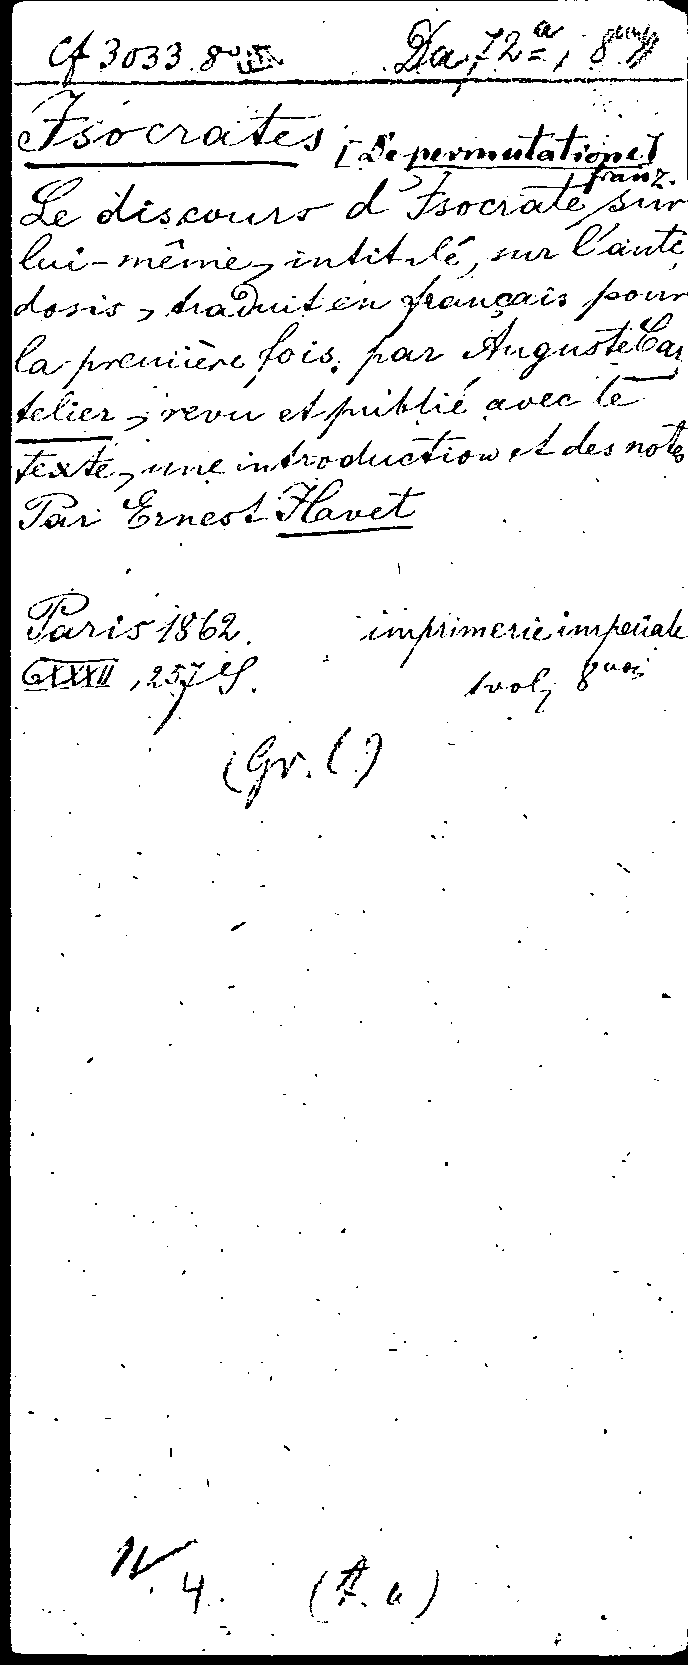 Cf 3033 8°
Da 72ª, 8
Isocrates [De permutatione]
franz.
Le discours d'Isocrate sur
lui-même, intitulé, sur l'anti
dosis, traduit en français pour
la première fois, par Auguste Car
telier, revu et publié avec le
texte, une introduction et des notes
Par Ernest Havet
Paris 1862. imprimerie imperiale
CXXXII, 257 S. 1 vol, 8
(Gr. L)
IV. 4. (A. a)